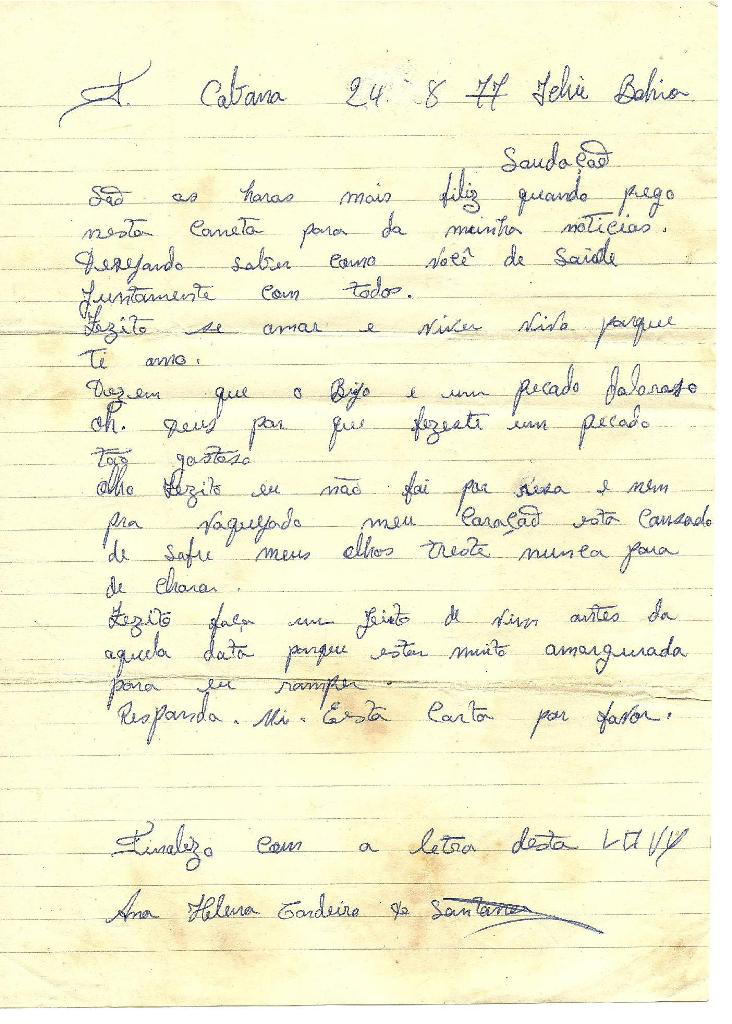 F. Cabana 24. 8 77 Feliz Bahia
Saudação
São as horas mais filiz quando pego
nesta caneta para da minha noticias.
Desejando saber como você de Saúde
Juntamente com todos.
Zezito se amar e viver vivo porque
Ti amo.
Dezem que o Bijo e um pecado
oh. Deus por que fezeste um pecado
tão gostoso
olho Zezito eu não fai por e nem
pra vaqueijado meu Caração esta Cansado
de Safre meus olhos treste nunca para
de chorar.
Zezito faça um jeito de vim antes da
aquela data porque estou muito amargurada
para eu romper.
Responda. Mi. Eesta Carta por favor.
Finalizo com a letra desta
Ana Helena Cordeiro de Santana